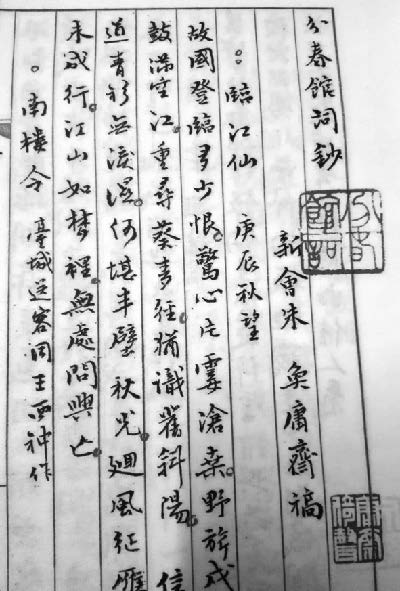 分春館詞鈔
新會朱 奐庸齋稿
臨江仙 庚辰秋望
故國登臨多少恨。驚心片霎滄桑。野旂戍
鼓滿空江。重尋葵麥徑。猶識舊斜陽。 信
道青衫無淚濕。何堪半壁秋光。迴風征雁
未成行。江山如夢裡。無處問興亡。
南樓令 臺城送客同王西神作
分春館詞
庸齋倚聲